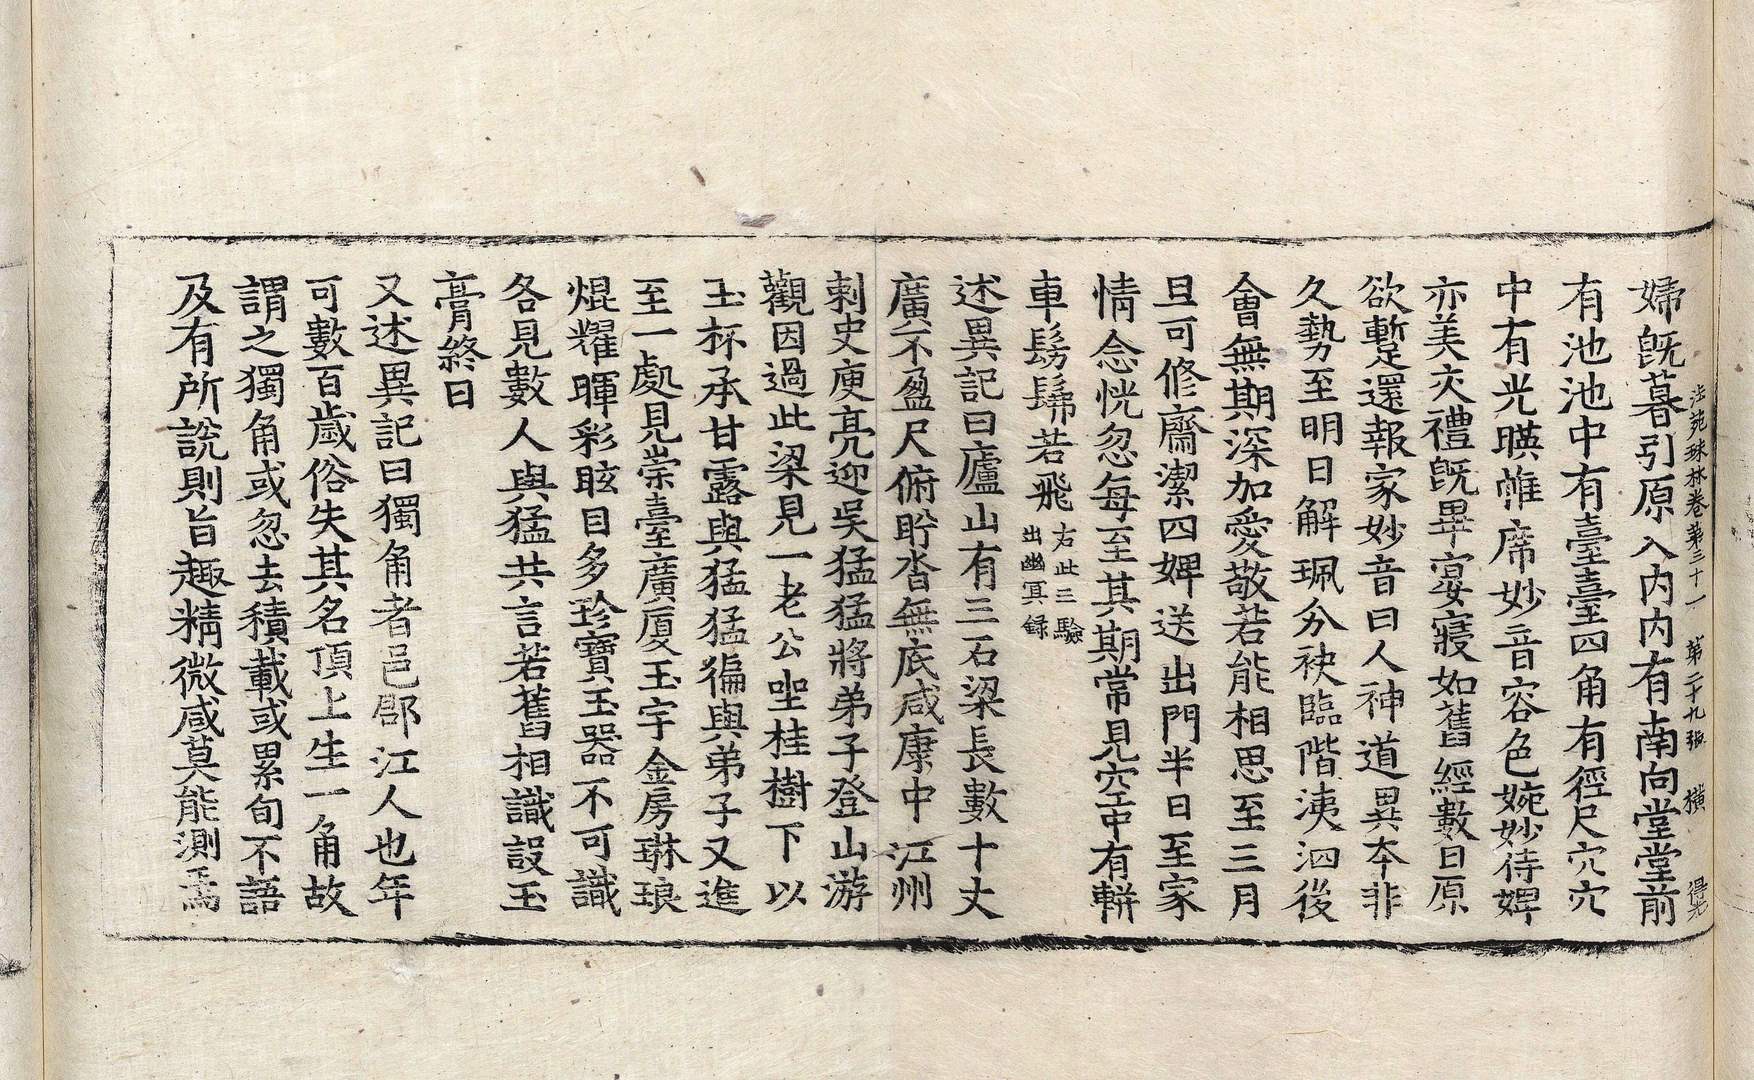 法苑珠林卷第三十一 第二十九張 横 得光
婦旣暮引原入內內有南向堂堂前
有池池中有臺臺四角有徑尺穴穴
中有光暎帷席妙音容色婉妙侍婢
亦美交禮旣畢宴寢如舊經數日原
欲暫還報家妙音曰人神道異本非
久勢至明日解珮分袂臨階涕泗後
會無期深加愛敬若能相思至三月
旦可修齋潔四婢送出門半日至家
情念恍忽每至其期常見空中有軿
車髣髴若飛右此三驗出幽冥録
述異記曰廬山有三石梁長數十丈
廣不盈尺俯眄杳無底咸康中江州
刺史庾亮迎吳猛猛將弟子登山游
觀因過此梁見一老公坐桂樹下以
玉杯承甘露與猛猛徧與弟子又進
至一處見崇臺廣廈玉宇金房琳琅
焜耀暉彩眩目多珍寶玉器不可識
各見數人與猛共言若舊相識設玉
膏終日
又述異記曰獨角者邑郡江人也年
可數百歲俗失其名頂上生一角故
謂之獨角或忽去積載或累旬不語
及有所說則旨趣精微咸莫能測焉